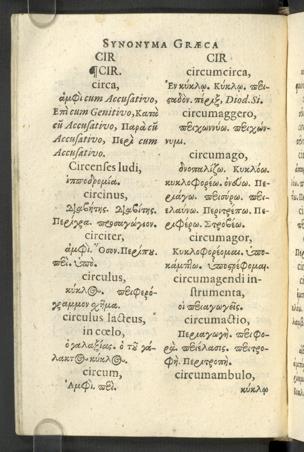 SYNONYMA GRÆCA
CIR
¶CIR.
circa,
ἀμφὶ cum Accusativo,
Ἐπὶ cum Genitivo, Κατὰ
cū Accusativo, Παρὰ cū
Accusativo, Περὶ cum
Accusativo.
Circenses ludi,
ἱπποδρομία.
circinus,
διαβήτης. διαβίτης.
Περίγρα. προσαγώγεον.
circiter,
ἀμφί. Ὅσον.
περί. ὑπό.
circulus,
κύκλος. περιφερό-
γραμμον σχῆμα.
circulus lacteus,
in cœlo,
ὁ γαλαξίας. ὁ τῦ γά-
λακτος κύκλος.
circum,
Ἀμφί. περί.
CIR
circumcirca,
Ἐν κύκλῳ. Κύκλῳ. περι-
πέριξ, Diod. Si.
circumaggero,
περιχωννύω. περιχών-
νυμι.
circumago,
δνοπαλίζω. Κυκλόω.
κυκλοφορέω. Πε-
ριάγω. περισύρω. περι-
ελαύνω. Περιτρέπω. Πε-
ριφέρω. Στροβέω.
circumagor,
Κυκλοφορέομαι. ὑπο-
κάμπτω. ὑποστρέφομαι.
circumagendi in-
strumenta,
οἱ περιαγωγεῖς.
circumactio,
Περιαγωγή. περιφο-
ρὰ. περιέλασις. περιστρο-
φή. Περιτροπή.
circumambulo,
κύκλῳ